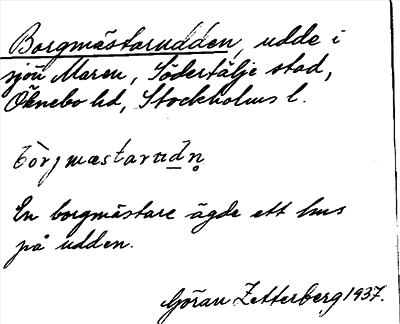 Borgmästarudden, udde i
sjön Maren, Södertälje stad,
Öknebo hd, Stockholms l.
bòrjmæstarudn̥
En borgmästare ägde ett hus
på udden.
Göran Zetterberg 1937.